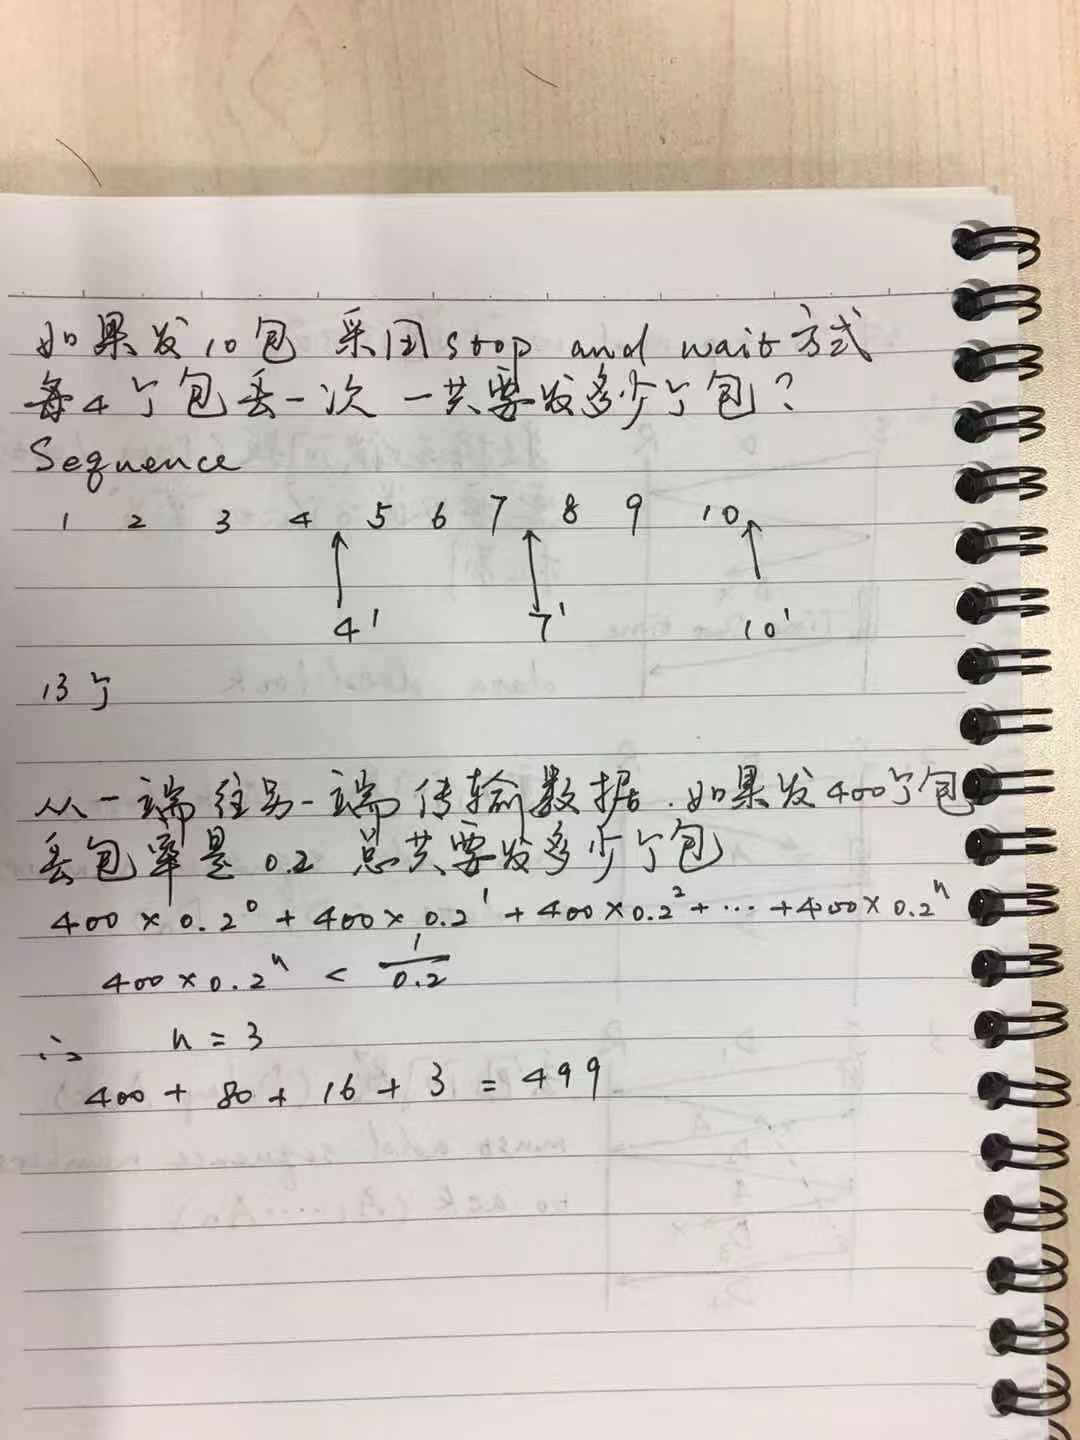 如果发10包 采用stop and wait方式
每4个包丢一次 一共要发多少个包?
Sequence
1 2 3 4 5 6 7 8 9 10
4' 7' 10'
13个
从一端往另一端传输数据.如果发400个包
丢包率是 0.2 总共要发多少个包
400 × 0.2⁰ + 400 × 0.2¹ + 400 × 0.2² + ... + 400 × 0.2ⁿ
400 × 0.2ⁿ < 1/0.2
∴ n = 3
400 + 80 + 16 + 3 = 499